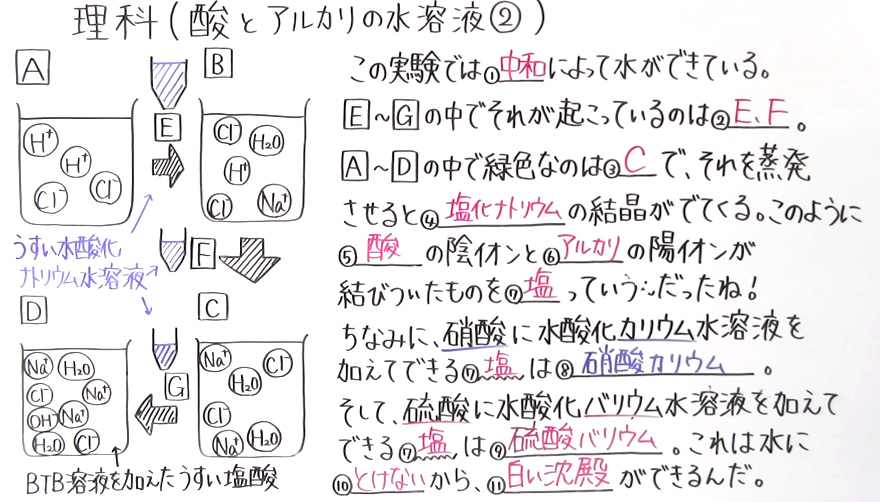 理科(酸とアルカリの水溶液②)
A
B
H⁺
H⁺
Cl⁻
Cl⁻
E
Cl⁻
H₂O
H⁺
Cl⁻
Na⁺
うすい水酸化
ナトリウム水溶液
F
D
C
Na⁺
H₂O
Cl⁻
Na⁺
OH⁻
Na⁺
H₂O
Cl⁻
G
Na⁺
Cl⁻
H₂O
Cl⁻
Na⁺
H₂O
BTB溶液を加えたうすい塩酸
この実験では①中和によって水ができている。
E~Gの中でそれが起こっているのは②E、F。
A~Dの中で緑色なのは③Cで、それを蒸発
させると④塩化ナトリウムの結晶がでてくる。このように
⑤酸の陰イオンと⑥アルカリの陽イオンが
結びついたものを⑦塩っていうんだったね!
ちなみに、硝酸に水酸化カリウム水溶液を
加えてできる⑦塩は⑧硝酸カリウム。
そして、硫酸に水酸化バリウム水溶液を加えて
できる⑦塩は⑨硫酸バリウム。これは水に
⑩とけないから、⑪白い沈殿ができるんだ。